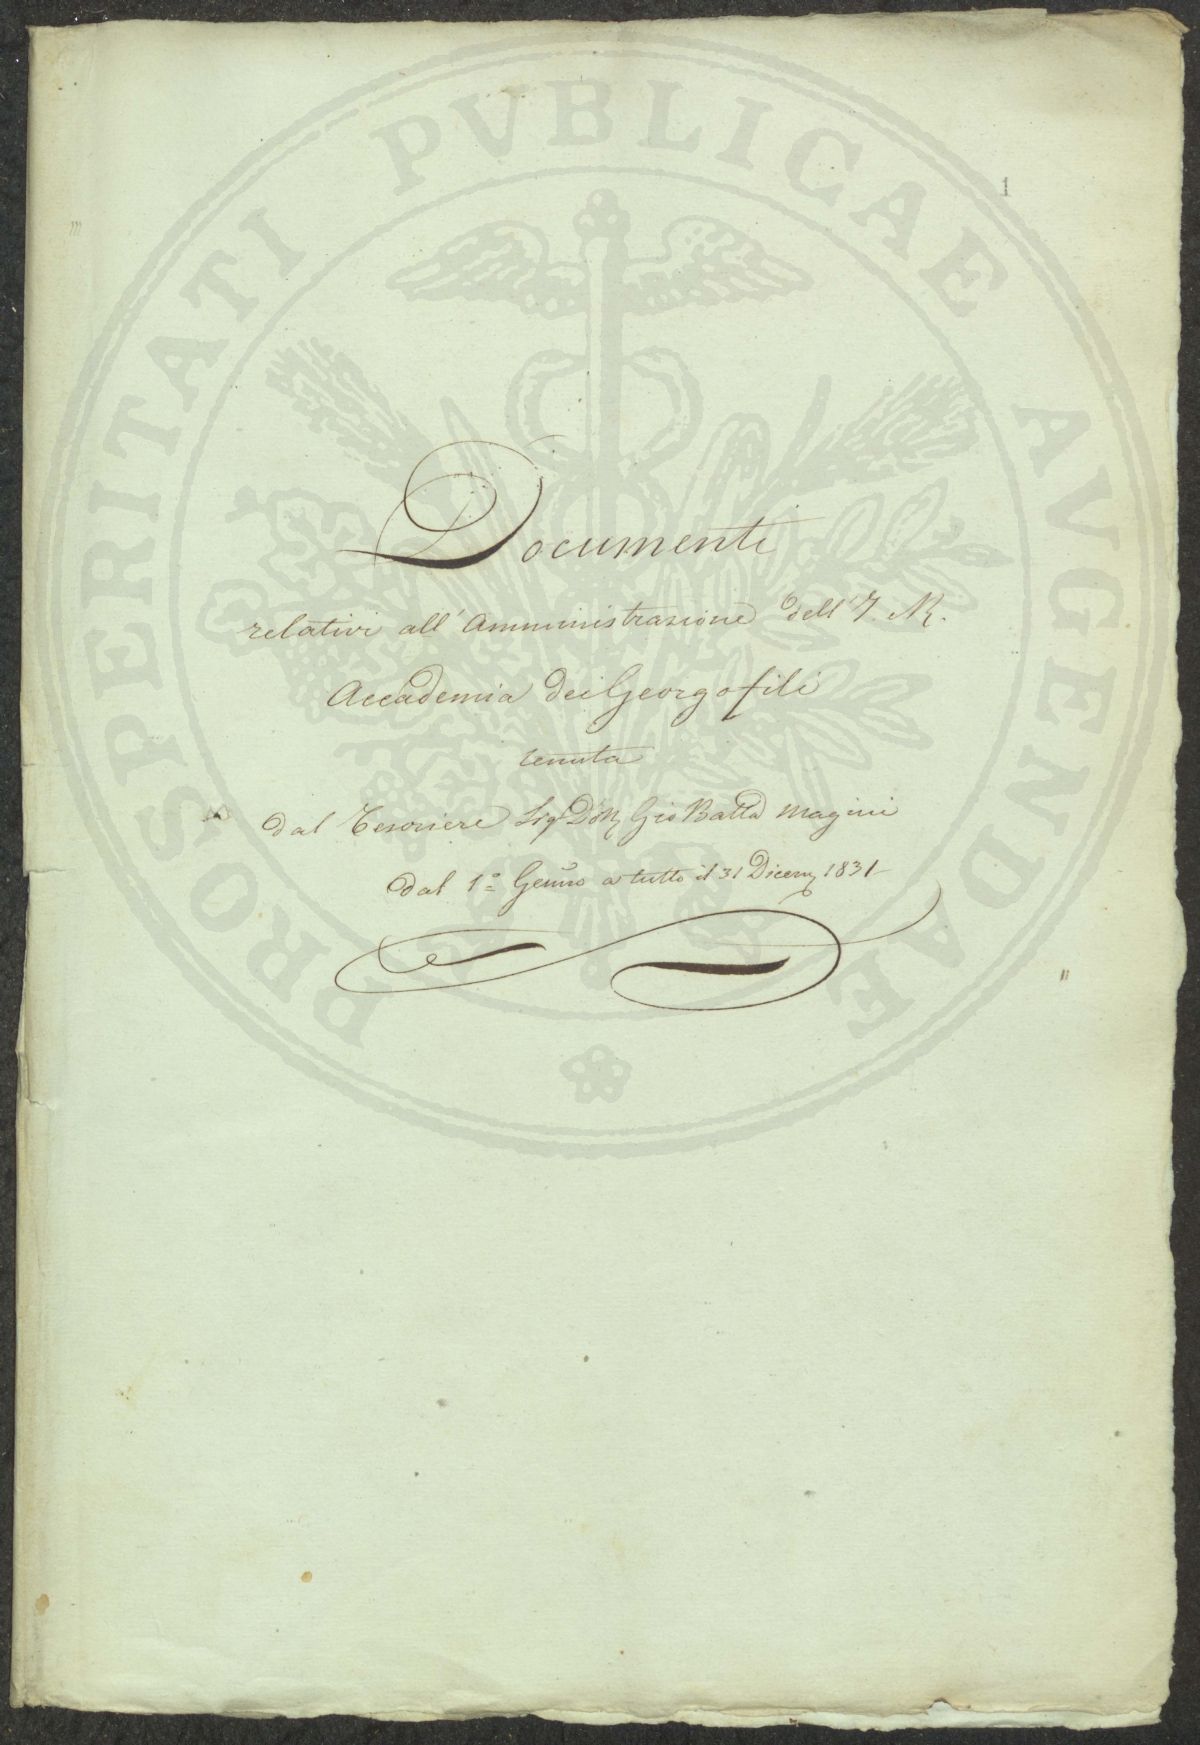 PROSPERITATI PVBLICAE AVGENDAE
1
Documenti
relativi all'Amministrazione dell'I. R.
Accademia dei Georgofili
tenuta
dal Tesoriere Sigr Dott Gio Batta Magini
dal 1° Genno a tutto il 31 Dicem 1831